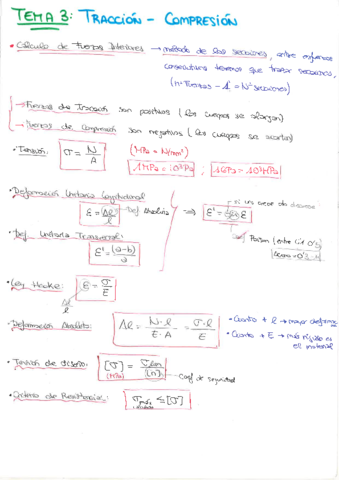 TEMA 3: TRACCIÓN - COMPRESIÓN
• Cálculo de Fuerzas Interiores → método de las secciones, entre esfuerzos
consecutivos tenemos que trazar secciones,
(nº Fuerzas - 1 = Nº secciones)
- Fuerzas de Tracción son positivas (los cuerpos se alargan)
- Fuerzas de Compresión son negativas (los cuerpos se acortan)
• Tensión: σ = N/A (MPa = N/mm²)
1MPa = 10⁶Pa ; 1GPa = 10³MPa
• Deformación Unitaria Longitudinal
ε = Δl/l → Def Absoluta ⇒ ε' = ε
• Def Unitaria Transversal: Poisson (entre 0 y 0'5)
ε' = (a-b)/a
• Ley Hooke: ε = σ/E
Δl/l
• Deformación Absoluta: Δl = N·l/E·A = σ·l/E
• Cuanto + l → mayor deforma
• Cuanto + E → más rígido es
el material
• Tensión de diseño: [σ] = σlim/[n] → Coef de seguridad
(MPa)
• Criterio de Resistencia: σmáx ≤ [σ]